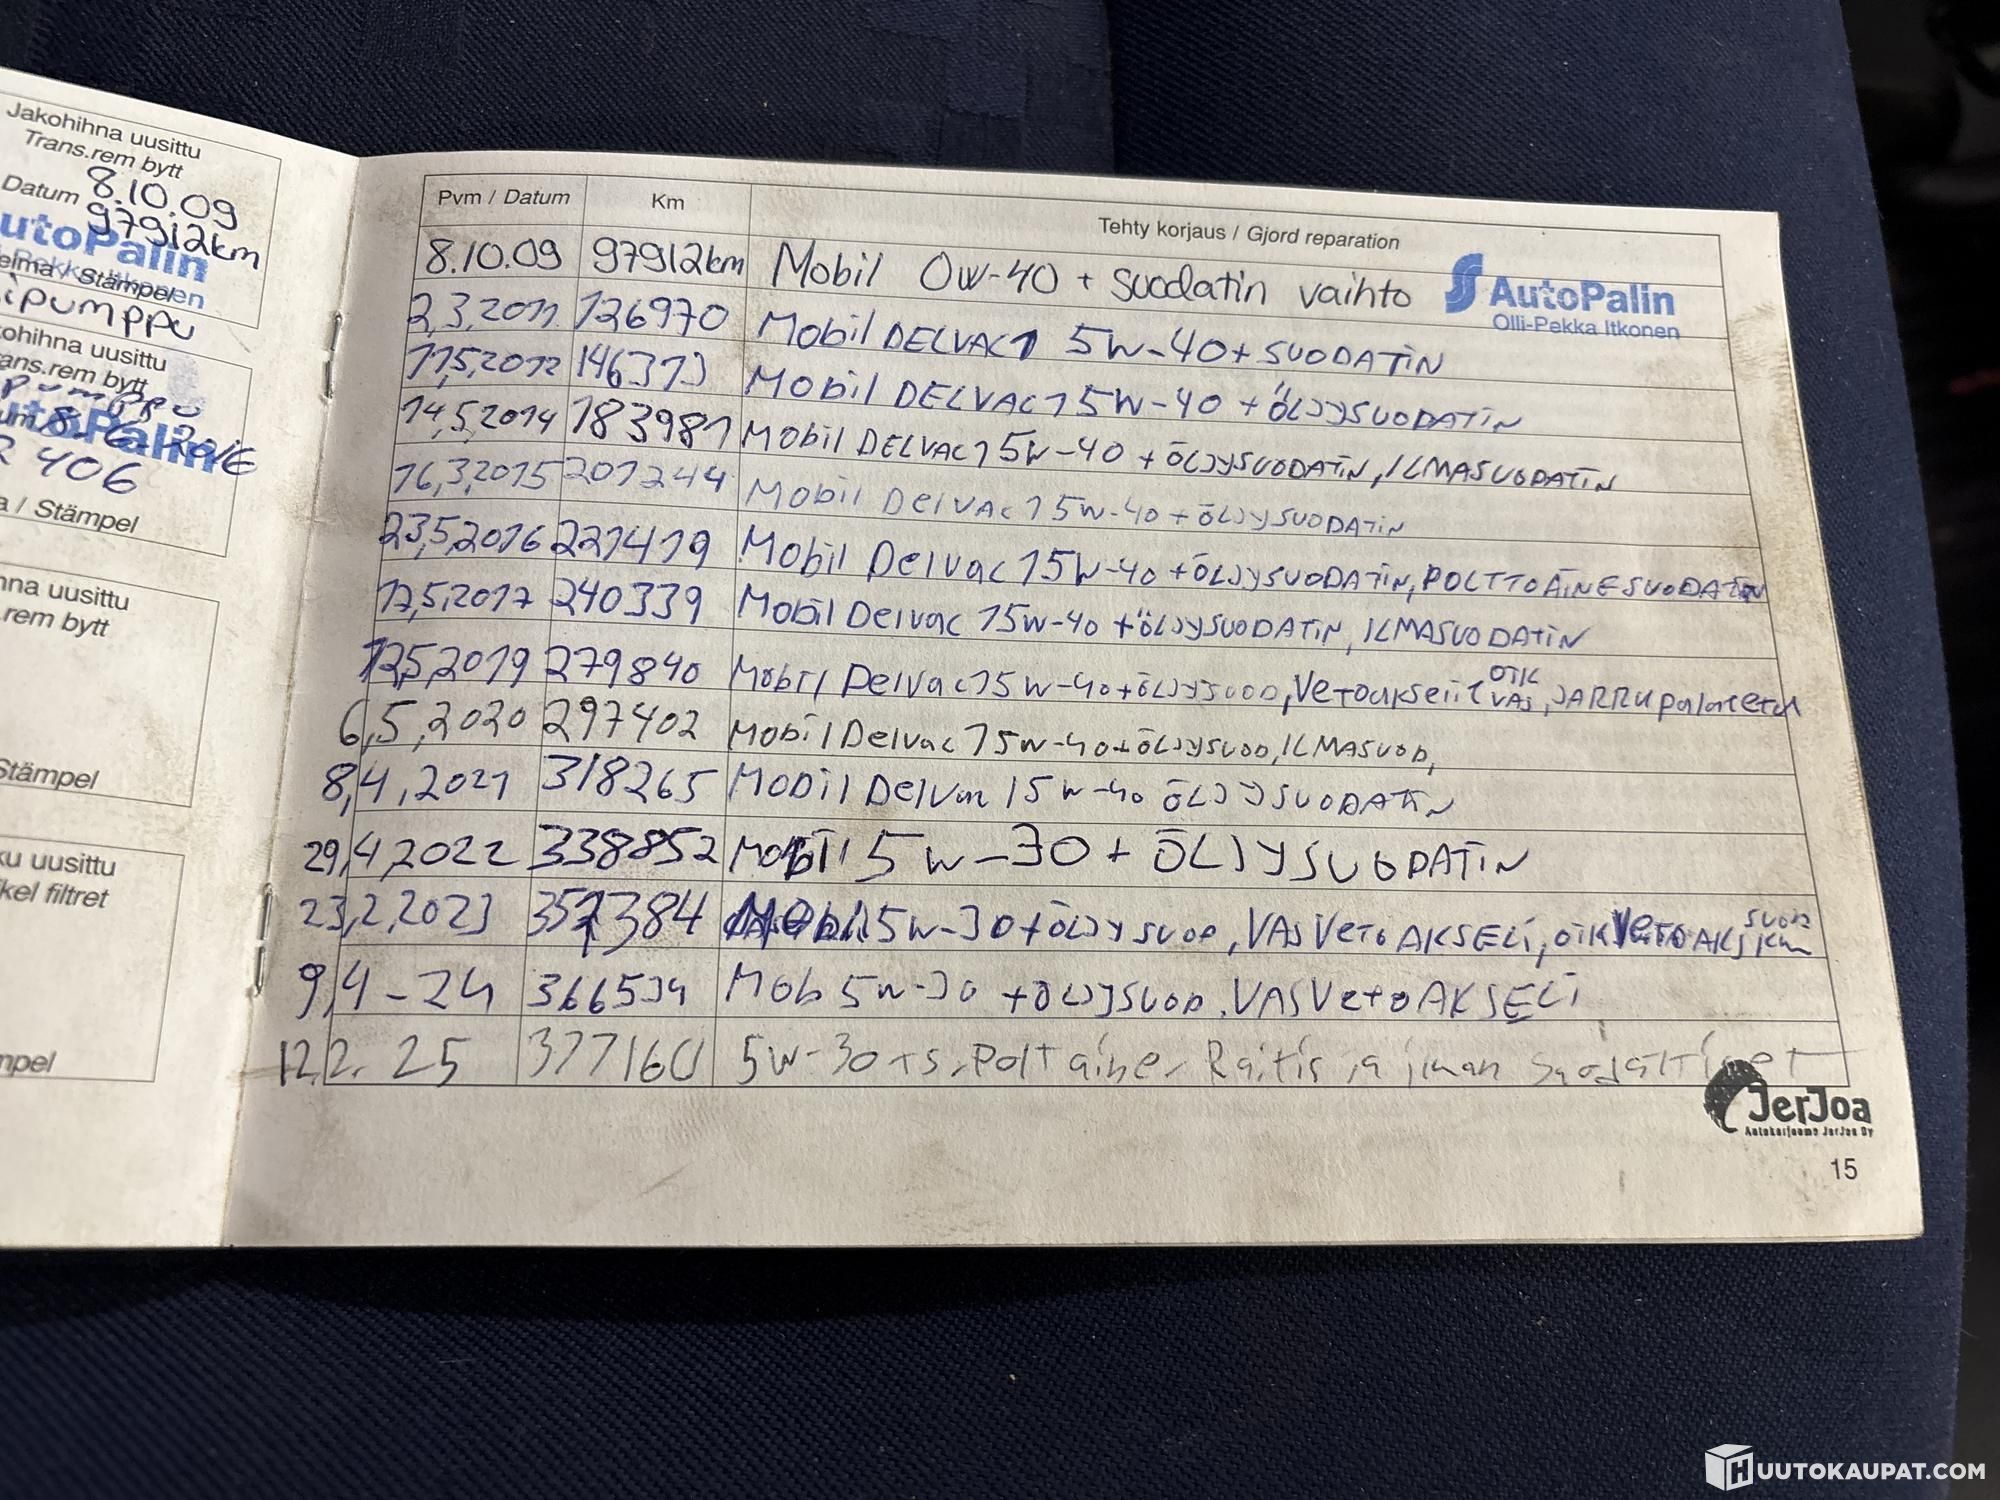 Jakohihna uusittu
Trans.rem bytt
Datum 8.10.09
97912km
utoPalin
Stämpel
ipumppu
ohihna uusittu
ans.rem bytt
406
a / Stämpel
nna uusittu
.rem bytt
Stämpel
ku uusittu
kel filtret
mpel
Pvm / Datum Km Tehty korjaus / Gjord reparation
8.10.09 97912km Mobil 0W-40 + Suodatin vaihto
AutoPalin
Olli-Pekka Itkonen
2,3,2011 126970 Mobil DELVAC1 5W-40+ SUODATIN
11,5,2012 146313 Mobil DELVAC1 5W-40 + ÖLJYSUODATIN
14,5,2014 183981 Mobil DELVAC1 5W-40 + ÖLJYSUODATIN, ILMASUODATIN
16,3,2015 201244 Mobil Delvac 15W-40 + ÖLJYSUODATIN
23,5,2016 221419 Mobil Delvac 15W-40 + ÖLJYSUODATIN, POLTTOAINESUODATIN
17,5,2017 240339 Mobil Delvac 15W-40 + ÖLJYSUODATIN, ILMASUODATIN
12,5,2019 279840 Mobil Delvac 15W-40+ÖLJYSUOD, Vetoakselit OIK VAS, JARRUpalat etu
6,5,2020 297402 Mobil Delvac 15W-40+ÖLJYSUOD, ILMASUOD,
8,4,2021 318265 Mobil Delvac 15W-40 ÖLJYSUODATIN
29,4,2022 338852 Mobil 5W-30 + ÖLJYSUODATIN
23,2,2023 Mobil 5W-30+ÖLJYSUOD, VAS VETOAKSELI, OIK VETOAKS
9,4-24 366534 Mob 5W-30 +ÖLJYSUOD, VAS VetoAKSELI
12.2. 25 377160 5W-30 +s. Poltaine. Raitis ja ilman Suodattimet
JerJoa
Autokorjaamo JerJoa Oy
15
HUUTOKAUPAT.COM